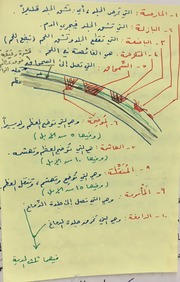 ١- الحارصة: التي تحرص الجلد، أي: تشق الجلد قليلاً
٢- البازلة: التي تشق الجلد فيخرج الدم
٣- الباضعة: التي تقطع الجلد وتشق اللحم (تبضع اللحم)
٤- المتلاحمة: هي الغائصة في اللحم
٥- السمحاق: التي تصل إلى
٦- الموضحة: وهي التي توضح العظم
(وفيها ٥ من الإبل)
٧- الهاشمة: هي التي توضح العظم وتهشمه.
(وفيها ١٠ من الإبل)
٨- المنقّلة: هي التي توضح وتهشم، وتنقل العظم
(وفيها ١٥ من الإبل)
٩- المأمومة: وهي التي تصل إلى جلدة الدماغ.
١٠- الدامغة: وهي التي تخرق جلدة الدماغ
فيهما ثلث الدية